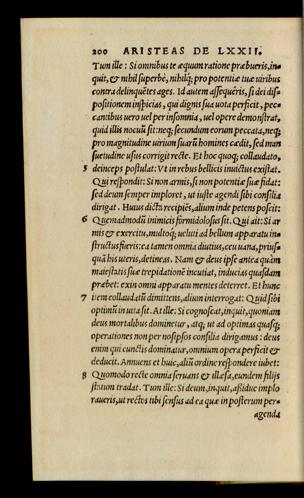 200 ARISTEAS DE LXXII.
Tum ille: Si omnibus te æquum ratione præbueris, in-
quit, & nihil superbè, nihilq; pro potentiæ tuæ uiribus
contra delinquẽtes ages. Id autem assequéris, si dei dis-
positionem inspicias, qui dignis sua uota perficit, pec-
cantibus uero uel per insomnia, uel opere demonstrat,
quid illis nocuũ sit: neq; secundum eorum peccata, neq;
pro magnitudine uirium suarũ homines cædit, sed man
suetudine usus corrigit recte. Et hoc quoq; collaudato,
5 deinceps postulat: Vt in rebus bellicis inuictus existat.
Qui respondit: Si non armis, si non potentiæ suæ fidat:
sed deum semper imploret, ut iustè ausa sibi consilia
dirigat. Huius dictis recipiẽs, alium inde petens poscit:
6 Quemadmodũ inimicis formidolosus sit. Qui ait: Si ar
mis & exercitu, multoq; ueluti ad bellum apparatu in-
structus fieris: ea tamen omnia diutius, ceu uana, prius-
quã his uteris, detineas. Nam & deus ipse antea quàm
maiestatis suæ trepidationẽ incutiat, inducias quasdam
præbet: exin omni apparatu mentes deterret. Et hunc
7 item collaudatũ dimittens, alium interrogat: Quid sibi
optimũ in uita sit. At ille: Si cognoscat, inquit, quoniam
deus mortalibus dominetur, atq; ut ad optimas quasq;
operationes non per nosipsos consilia dirigamus: deus
enim qui cunctis dominatur, omnium opera perficit &
deducit. Annuens et huic, aliũ ordine respõdere iubet:
8 Quomodo recte omnia seruans & illæsa, eundem filijs
statum tradat. Tum ille: Si deum, inquit, assidue implo
raueris, ut rectos tibi sensus ad ea quæ in posterum per-
agenda